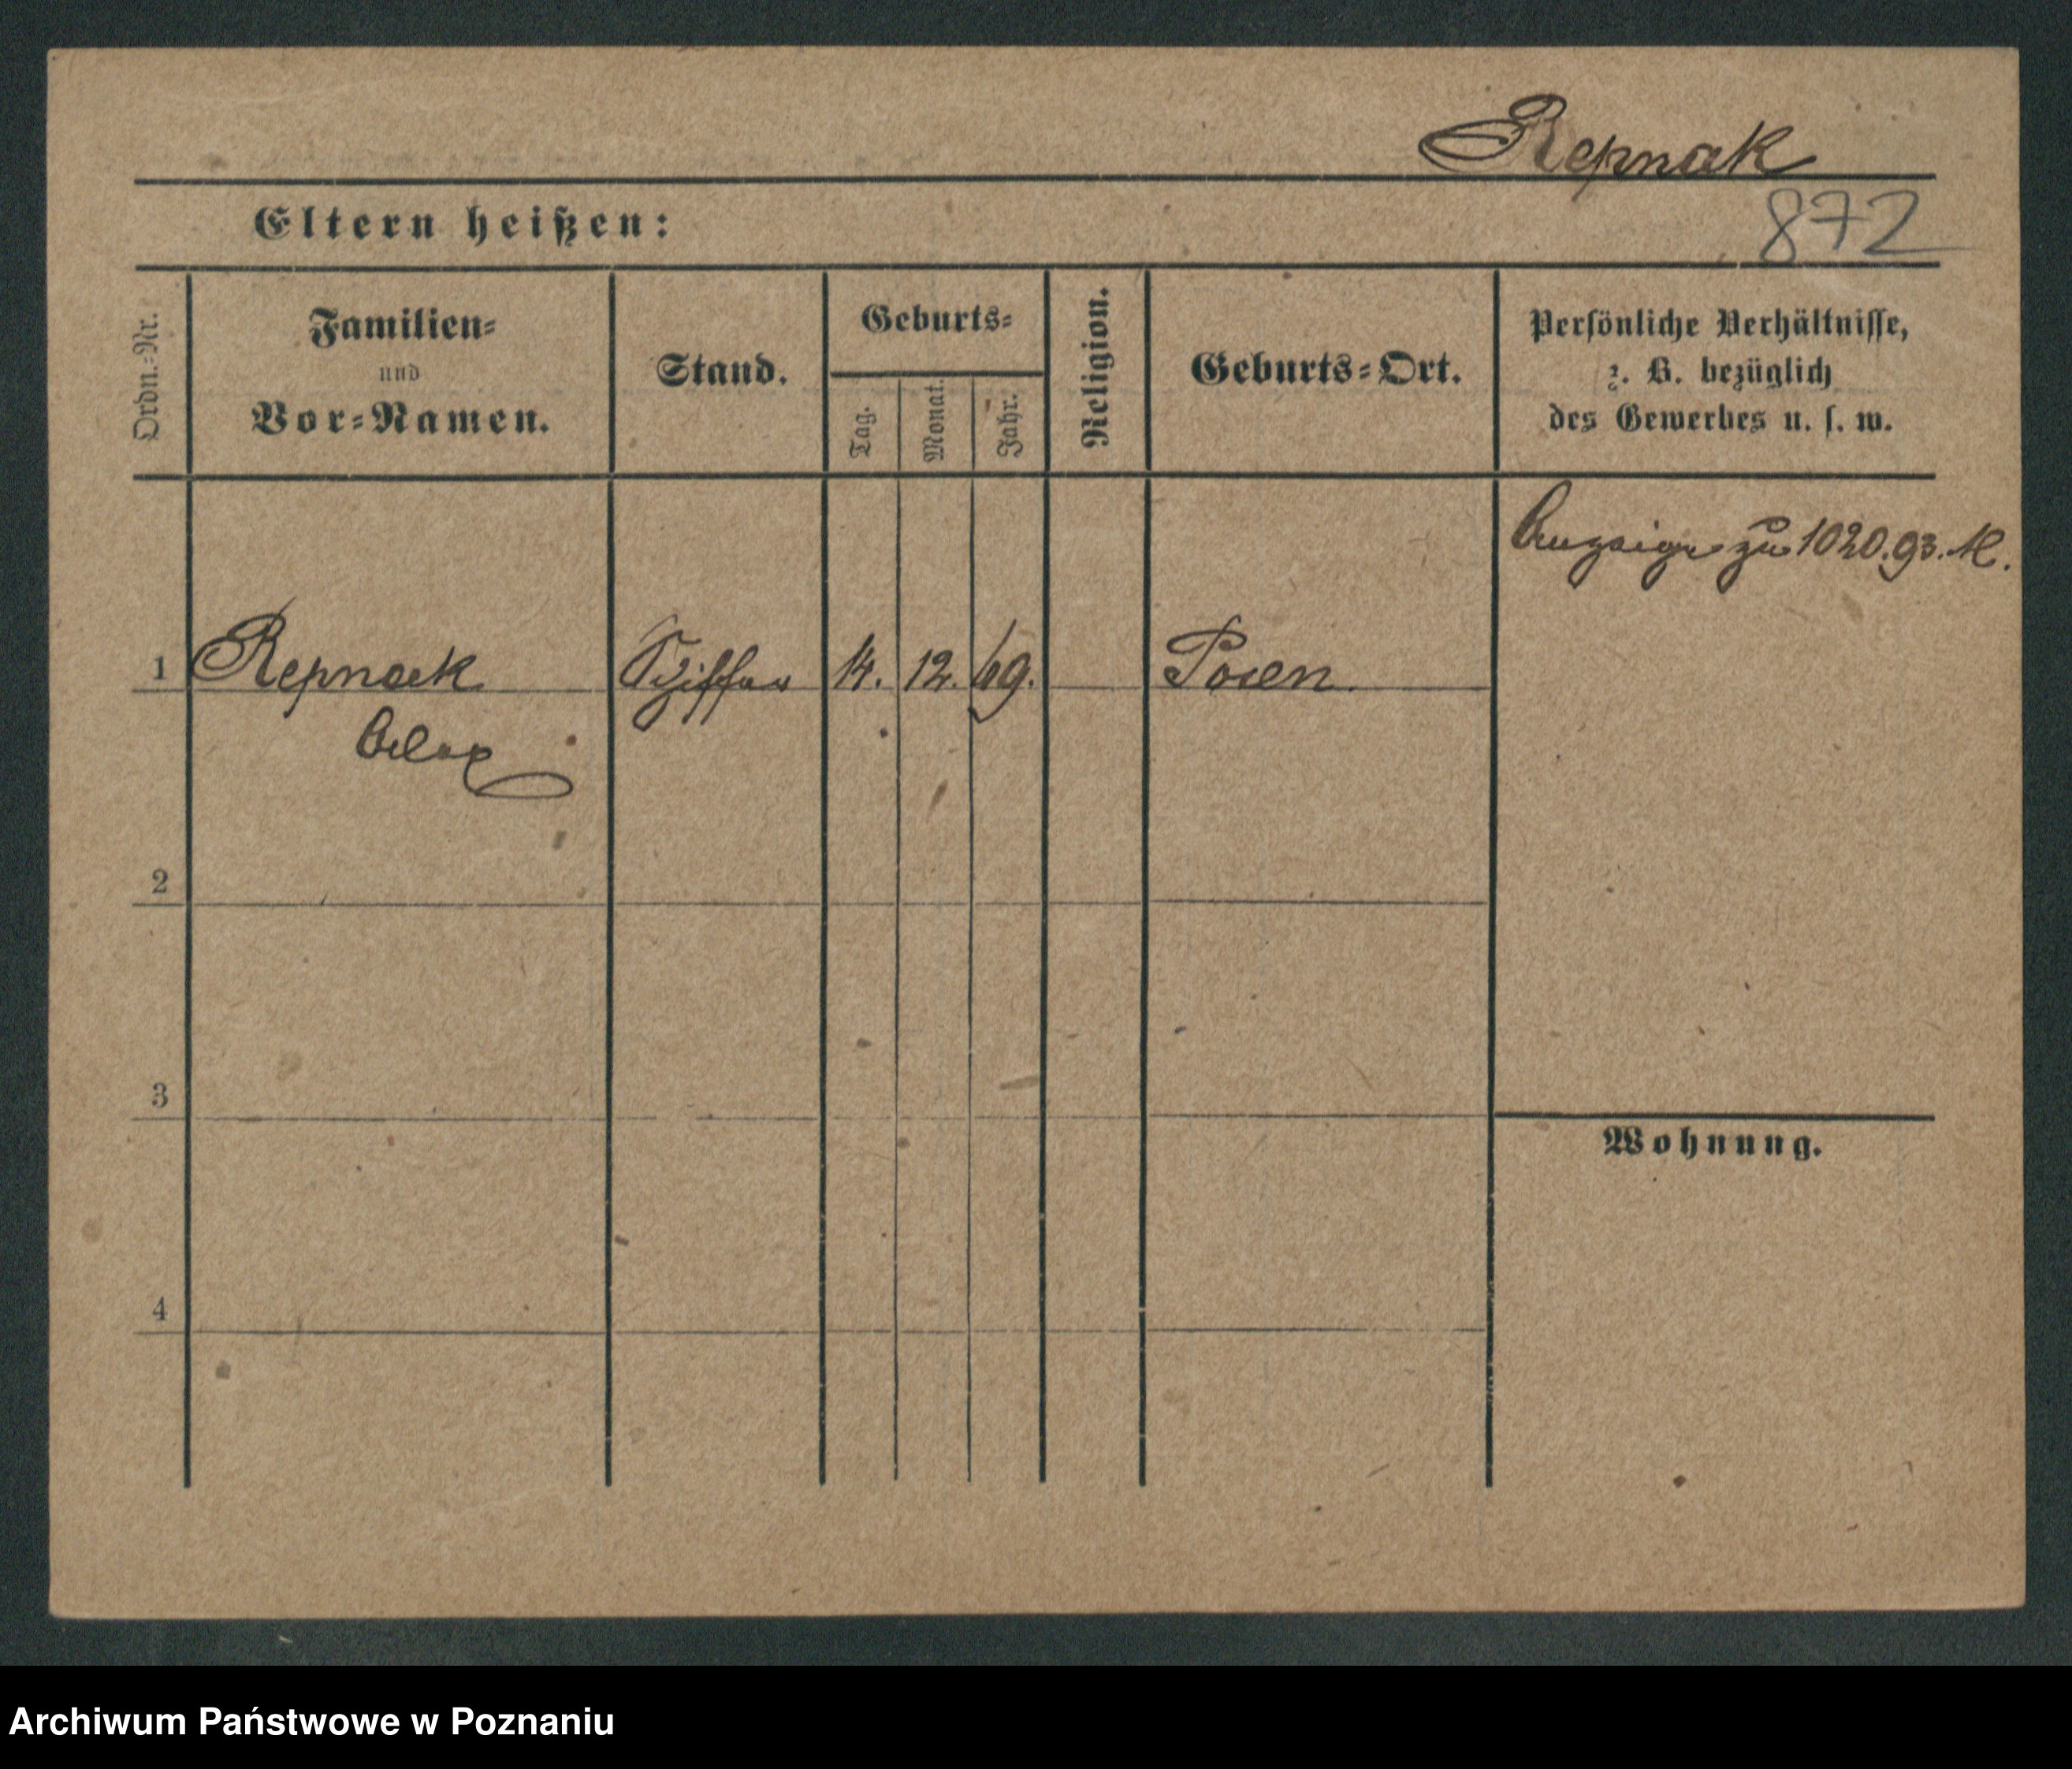 Repnak
Eltern heißen:
872
Ordn.=Nr.
Familien=
und
Vor=Namen.
Stand.
Geburts=
Tag.
Monat.
Jahr.
Religion.
Geburts=Ort.
Persönliche Verhältnisse,
z. B. bezüglich
des Gewerbes u. s. w.
Anzeige zu 1020.93. M.
1 Repnak Schiffer 14. 12. 69. Posen.
Alex
2
3
Wohnung.
4
Archiwum Państwowe w Poznaniu